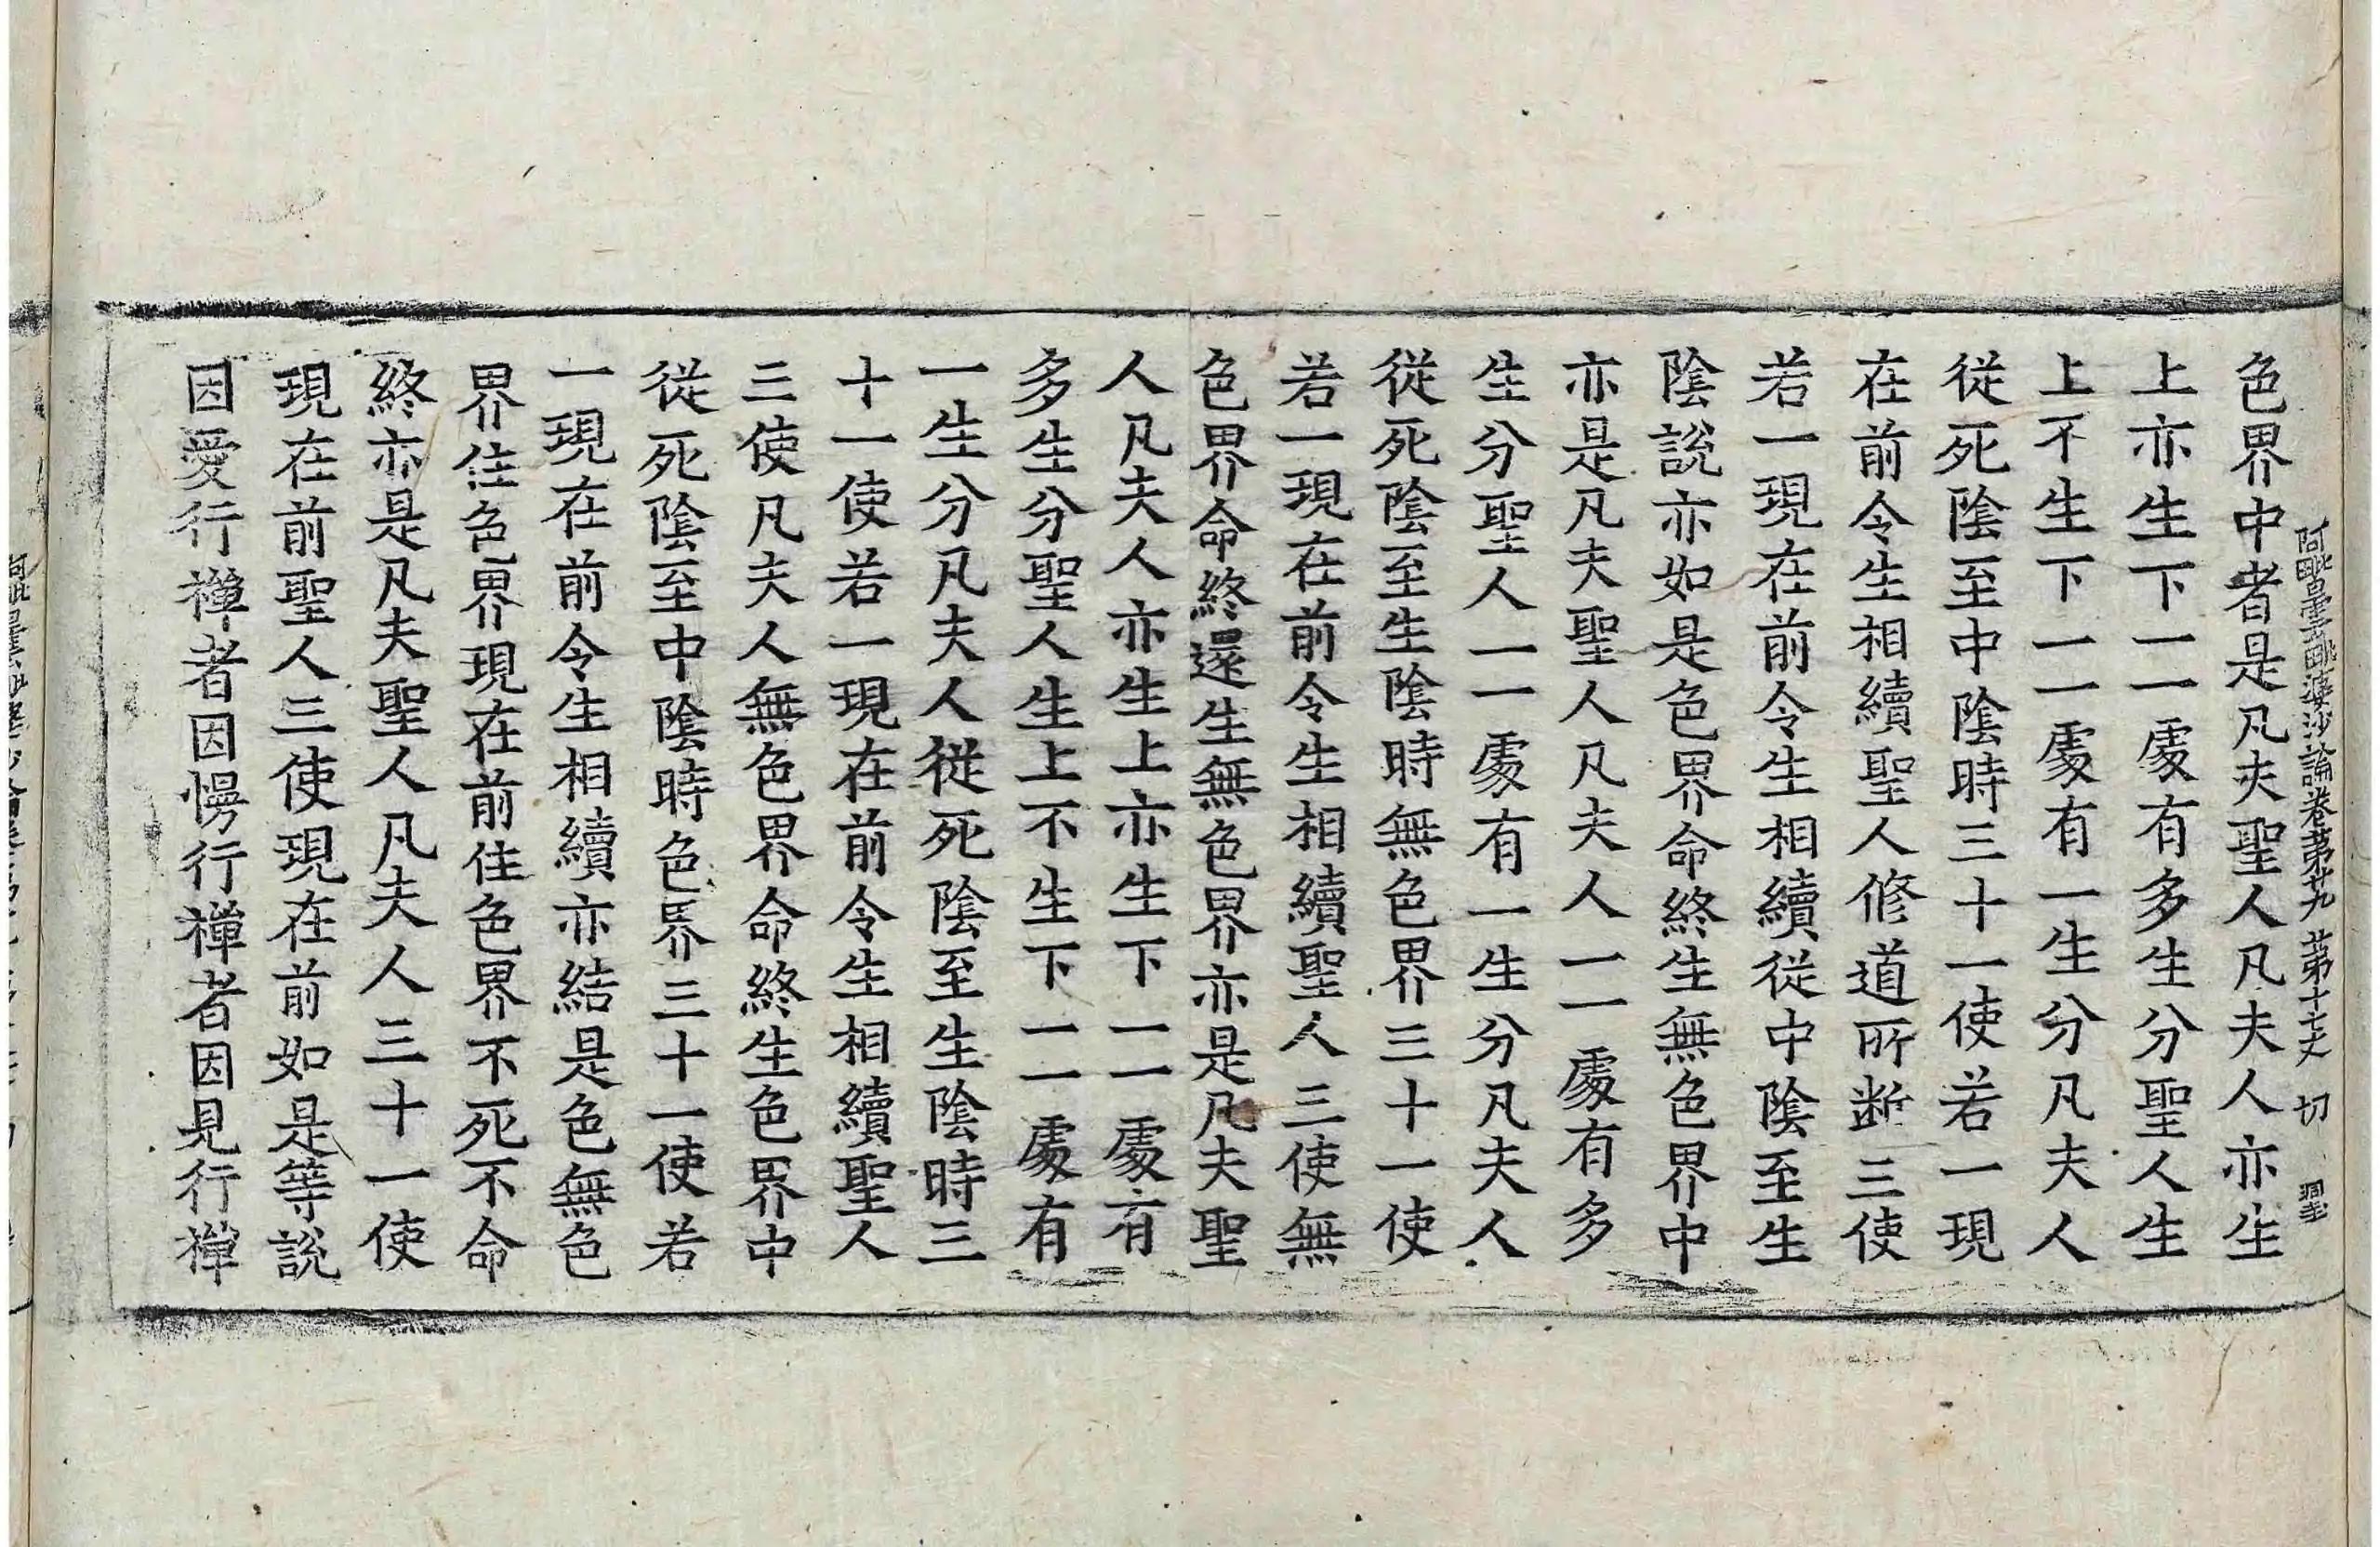 阿毗曇毗婆沙論卷第卄九 第十七丈 切
色界中者是凡夫聖人凡夫人亦生
上亦生下一一處有多生分聖人生
上不生下一一處有一生分凡夫人
從死陰至中陰時三十一使若一現
在前令生相續聖人修道所斷三使
若一現在前令生相續從中陰至生
陰說亦如是色界命終生無色界中
亦是凡夫聖人凡夫人一一處有多
生分聖人一一處有一生分凡夫人
從死陰至生陰時無色界三十一使
若一現在前令生相續聖人三使無
色界命終還生無色界亦是凡夫聖
人凡夫人亦生上亦生下一一處有
多生分聖人生上不生下一一處有
一生分凡夫人從死陰至生陰時三
十一使若一現在前令生相續聖人
三使凡夫人無色界命終生色界中
從死陰至中陰時色界三十一使若
一現在前令生相續亦結是色無色
界住色界現在前住色界不死不命
終亦是凡夫聖人凡夫人三十一使
現在前聖人三使現在前如是等說
因愛行禪者因慢行禪者因見行禪